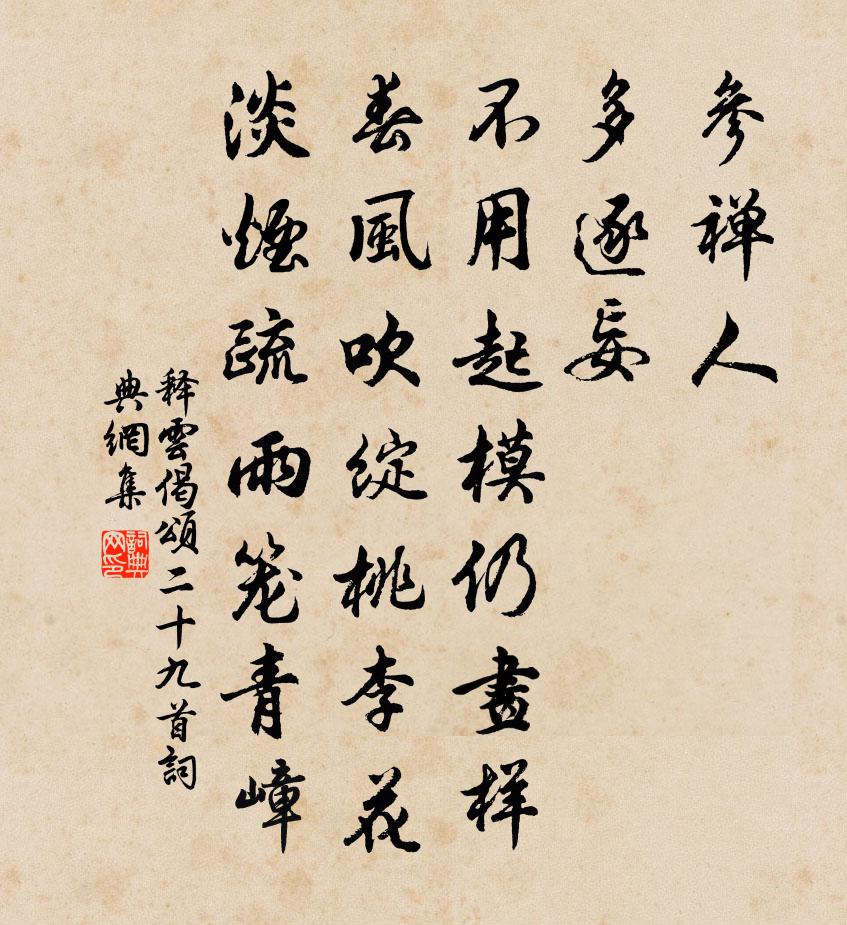 參禅人
多逐妄
不用起模仍畫样
春風吹綻桃李花
淡煙疏雨笼青嶂
释雲偈頌二十九首詞
典網集
詞典
网印